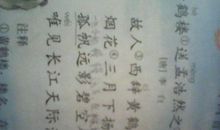 鹤楼①送孟浩然之
[唐]李白
故人②西辞黄鹤
烟花③三月下扬
孤帆远影碧空
唯见长江天际
注释